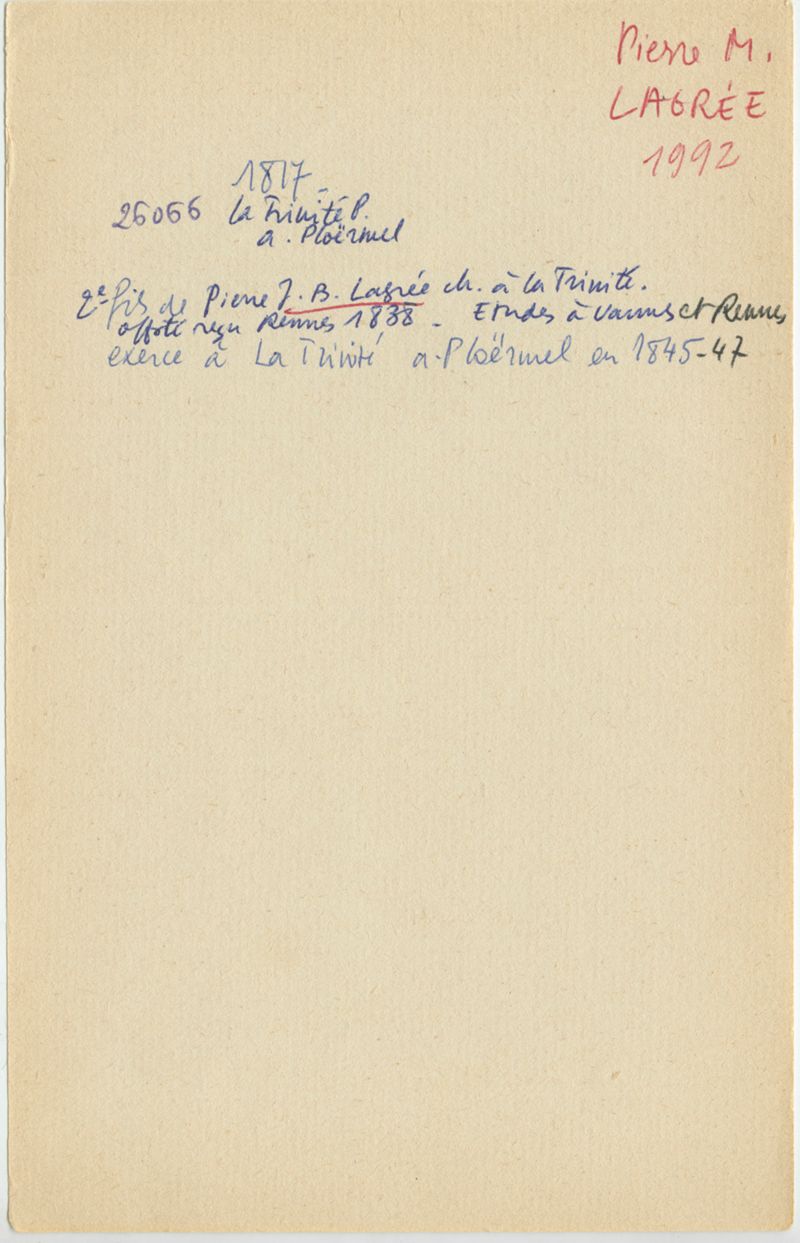 Pierre M.
LAGRÉE
1992
1817_
26066 la Trinité P.
a. Ploërmel
2e fils de Pierre J. B. Lagrée ch. à la Trinité.
offté reçu Rennes 1838 - Etudes à Vannes et Rennes
exerce à La Trinité a. Ploërmel en 1845-47